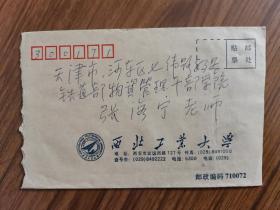 300171
贴邮
票处
天津市.河东区七纬路好多
铁道部物资管理干部学院
张 宁 老师
西北工业大学
地 址: 西安市友谊西路127号
查号台: (029)8492222 电挂: 6300 电传: (029)
邮政编码 710072